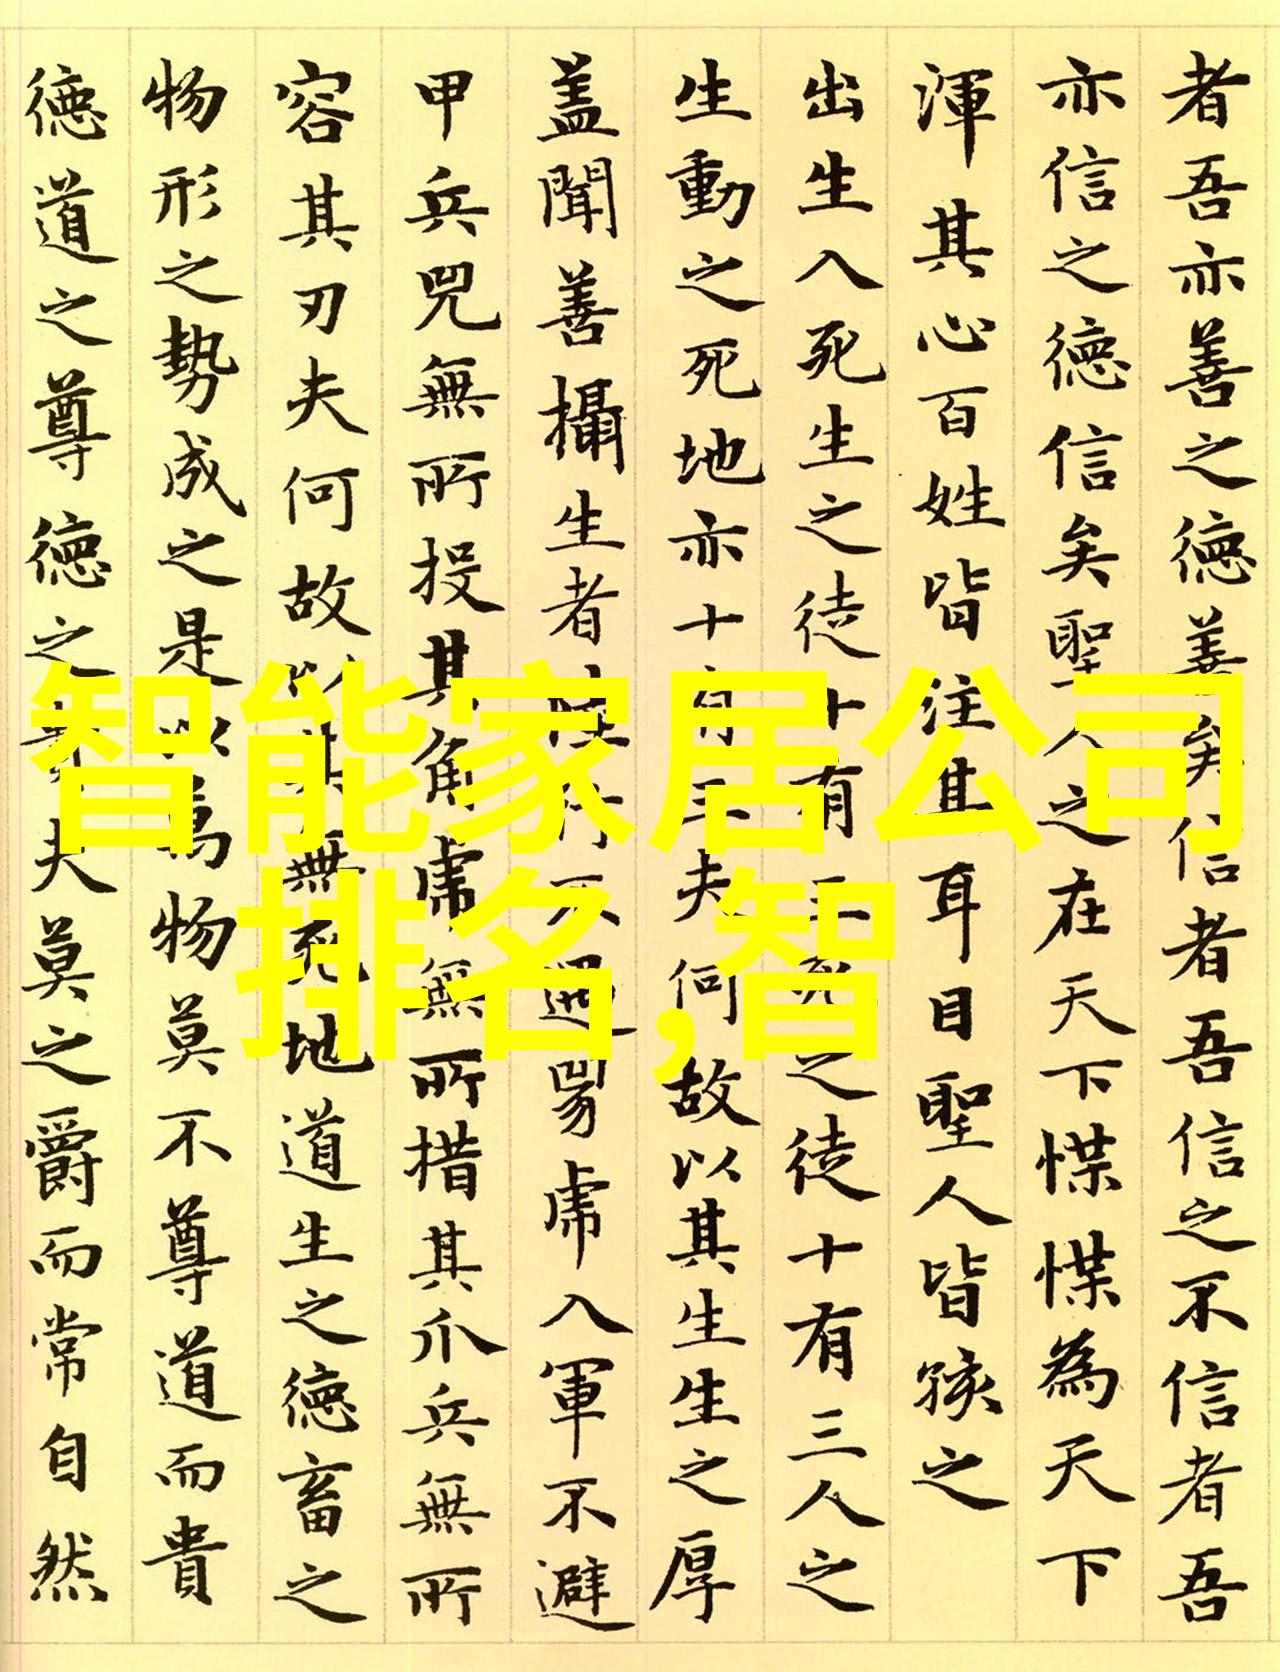 者吾亦善之德善矣信者吾信之不信者吾
亦信之德信矣聖人之在天下惵惵為天下
渾其心百姓皆注其耳目聖人皆孩之
出生入死生之徒十有三死之徒十有三人之
生動之死地亦十有三夫何故以其生生之厚
蓋聞善攝生者陸行不遇兕虎入軍不避
甲兵兕無所投其角虎無所措其爪兵無所
容其刃夫何故以其無死地道生之德畜之
物形之勢成之是以為物莫不尊道而貴
德道之尊德之貴夫莫之爵而常自然
智能家居公司
排名,智